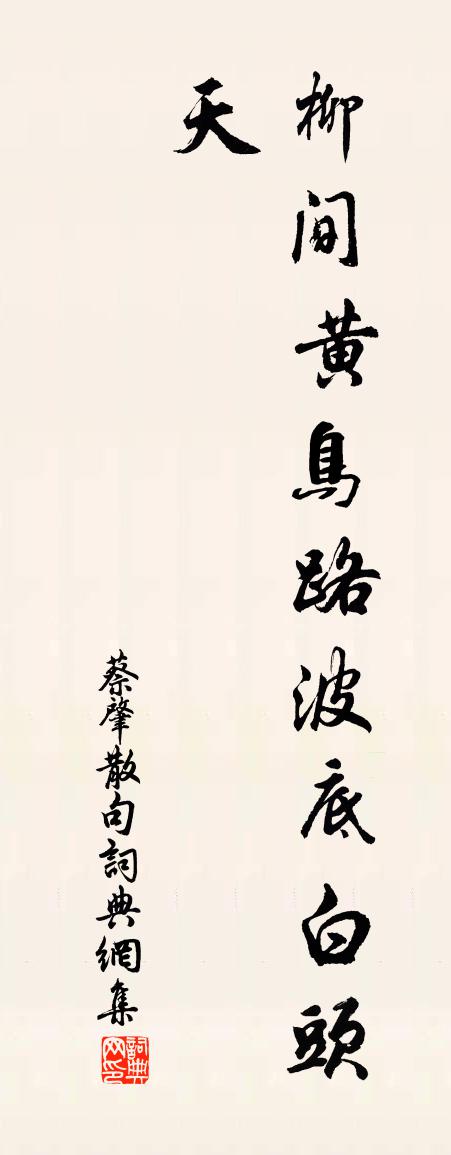 柳间黄鳥路波底白頭
天
蔡肇散句詞典網集
詞典网印